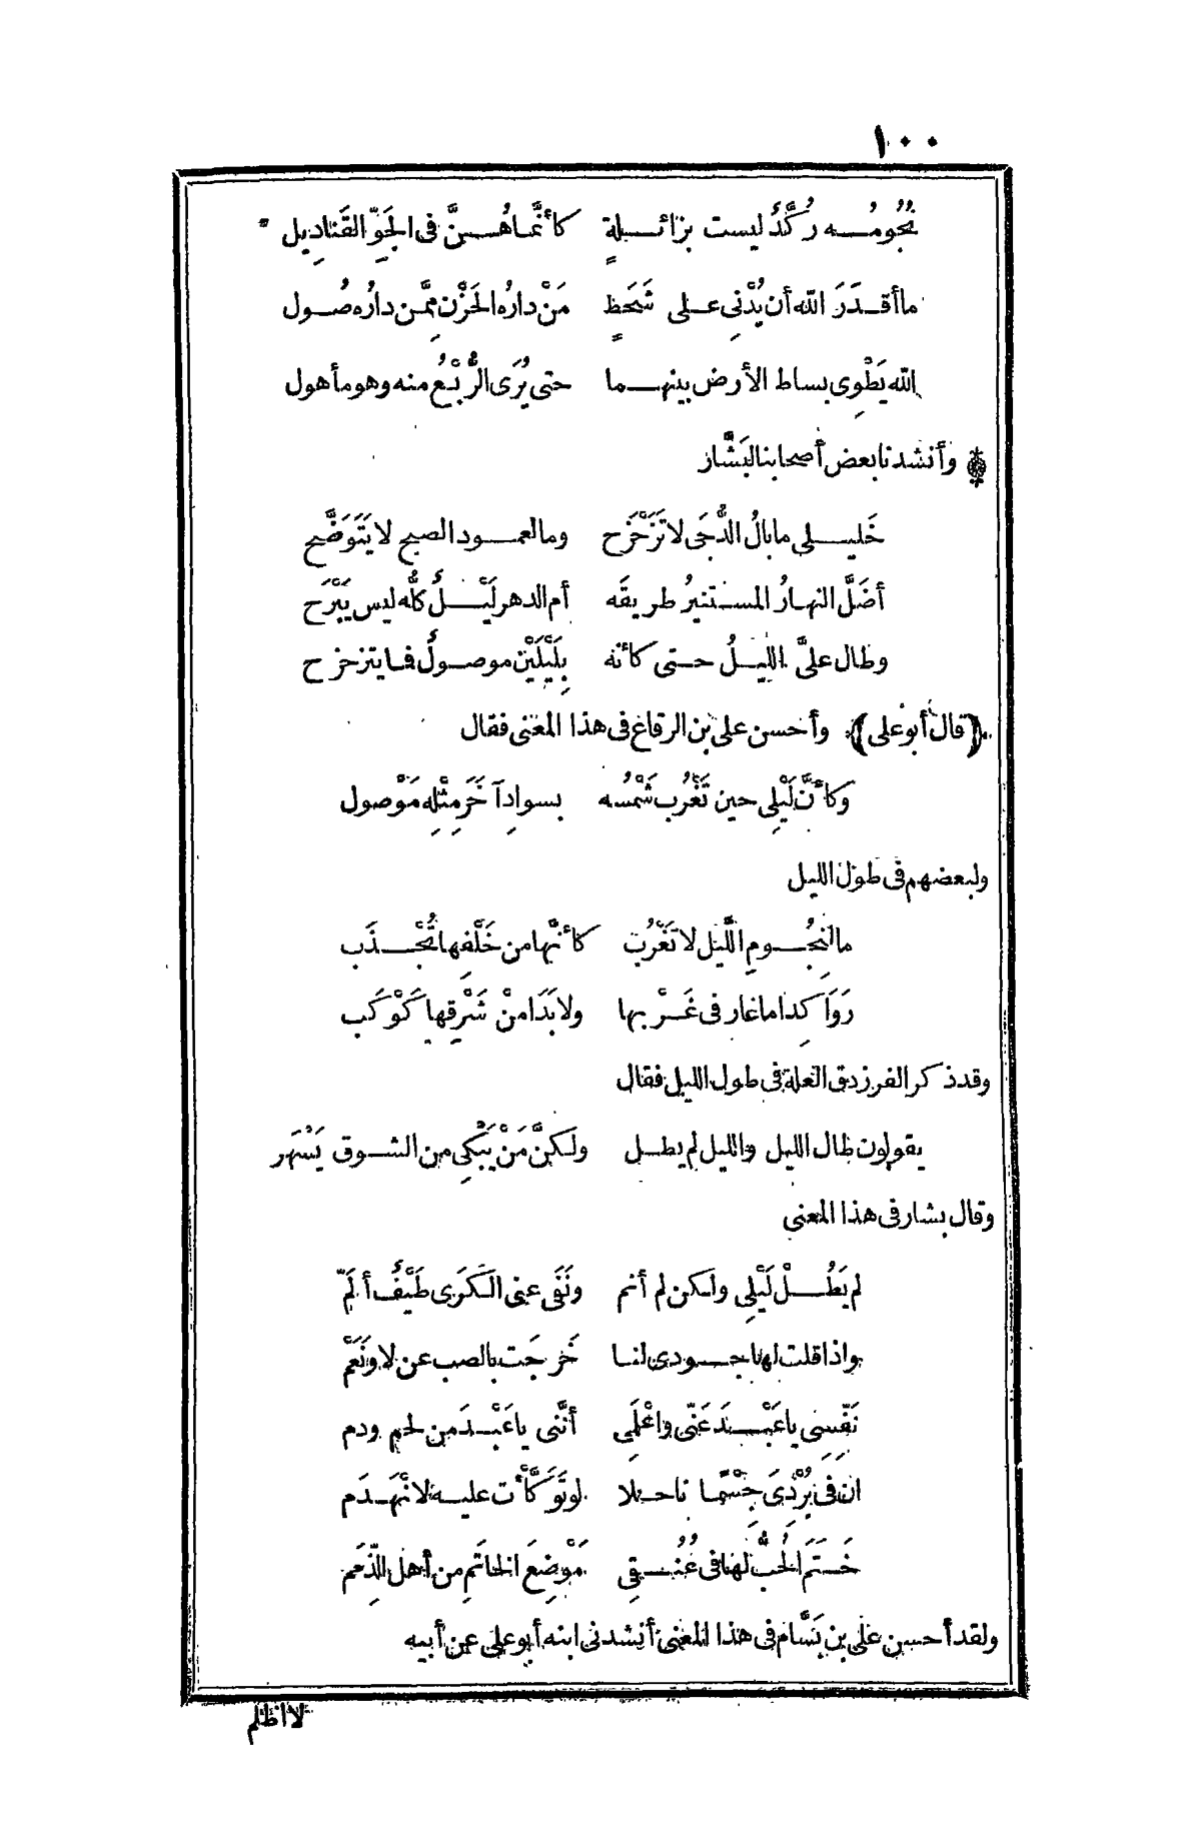 ١٠٠
نُجُومُه رُكَّدٌ ليست بزائلةٍ كأنَّما هُنَّ فى الجَوِّ القَنادِيل
ما أقدَرَ الله أن يُدْنِى على شَحَطٍ مَنْ دارُه الحَزْنِ ممَّن دارُه صُول
الله يَطْوِى بساط الأرض بينهما حتى يُرَى الرُّبْعُ منه وهو مأهول
وأنشدنا بعض أصحابنا لبَشَّار
خَليلى ما بالُ الدُّجَى لا تَزَحْزَح وما لعمود الصبح لا يَتَوَضَّح
أضَلَّ النهارُ المستنيرُ طريقَه أم الدهر لَيْلٌ كلُّه ليس يَبْرَح
وطال علىَّ الليلُ حتى كأنه بِلَيْلَيْن موصولٌ فما يتزحزح
﴿قال أبو على﴾ وأحسن على بن الرقاع فى هذا المعنى فقال
وكأنَّ لَيْلِى حين تَغْرُب شَمْسُه بسوادِ آخَرَ مِثْلِه مَوْصول
ولبعضهم فى طول الليل
ما لِنُجُومِ اللَّيل لا تَغْرُبُ كأنَّها من خَلْفِها تُجْذَب
رَوَاكِدا ما غار فى غَرْبها ولا بَدَا منْ شَرْقِها كَوْكَب
وقد ذكر الفرزدق العلة فى طول الليل فقال
يقولون طال الليل والليل لم يطل ولكنَّ مَنْ يَبْكِى من الشوق يَسْهَر
وقال بشار فى هذا المعنى
لم يَطُلْ لَيْلِى ولكن لم أنم ونَفَى عنى الكَرَى طَيْفٌ ألَمّ
واذا قلت لها جودى لنا خَرجَت بالصب عن لا ونَعَمْ
نَفِّسِى يا عَبْدَ عَنِّى واعْلَمِى أنَّنى يا عَبْدَ من لحم ودم
ان فى بُرْدَىَّ جِسْمًا ناحلا لو تَوَكَّأْت عليه لانْهَدَم
خَتَمَ الحُبُّ لها فى عُنُقِى مَوْضِعَ الخاتَمِ من أهل الذِّمَم
ولقد أحسن على بن بَسَّام فى هذا المعنى أنشدنى ابنه أبو على عن أبيه
لا أظلم